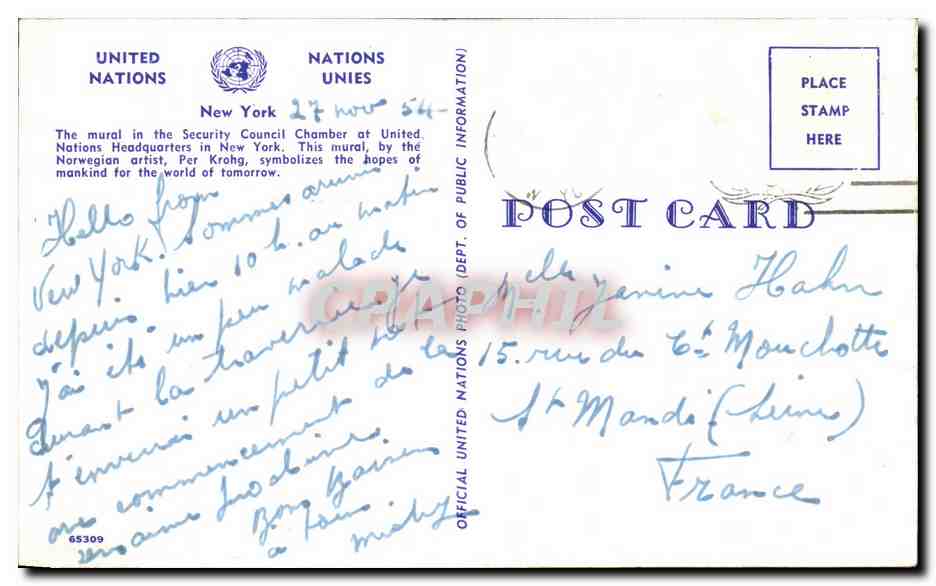 UNITED NATIONS
NATIONS UNIES
New York 27 nov 54-
The mural in the Security Council Chamber at United
Nations Headquarters in New York. This mural, by the
Norwegian artist, Per Krohg, symbolizes the hopes of
mankind for the world of tomorrow.
Hello from
New York. Sommes arrivés
depuis hier 10 h. au matin
J'ai été un peu malade
durant la traversée je
t'enverrai un petit
au commencement de la
semaine prochaine
Bons Baisers
à tous
65309
OFFICIAL UNITED NATIONS PHOTO (DEPT. OF PUBLIC INFORMATION)
PLACE
STAMP
HERE
POST CARD
CPAPHIL
Melle Janine Hahn
15. rue du Ct Mouchotte
St Mandé (Seine)
France